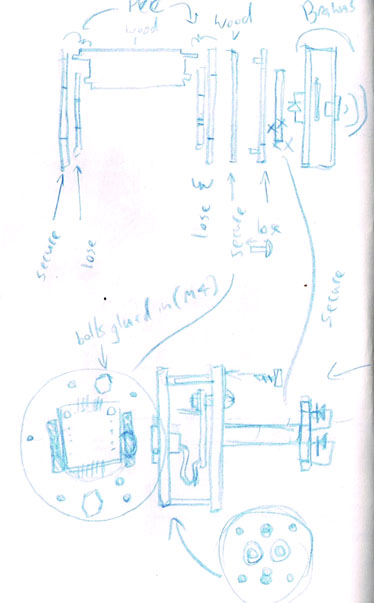 PVC
wood
wood
secure
lose
lose &
secure
secure
bolts glued in (M4)